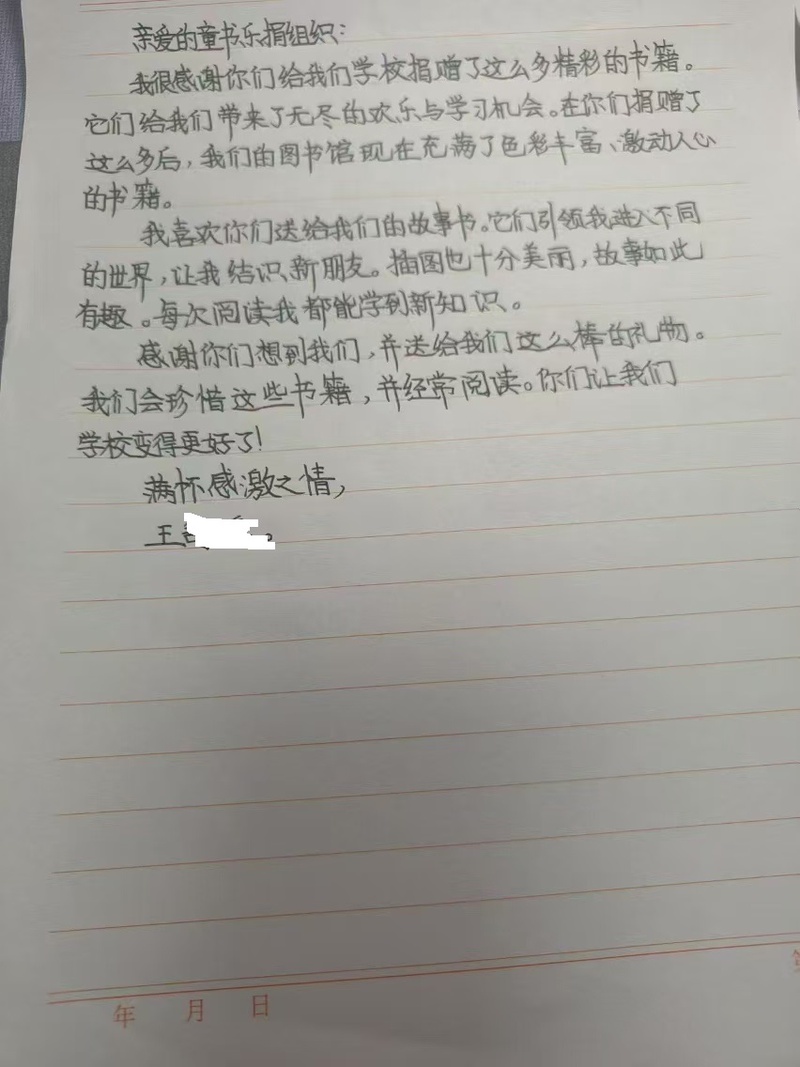 亲爱的童书乐捐组织：
我很感谢你们给我们学校捐赠了这么多精彩的书籍。
它们给我们带来了无尽的欢乐与学习机会。在你们捐赠了
这么多后，我们的图书馆现在充满了色彩丰富、激动人心
的书籍。
我喜欢你们送给我们的故事书。它们引领我进入不同
的世界，让我结识新朋友。插图也十分美丽，故事如此
有趣。每次阅读我都能学到新知识。
感谢你们想到我们，并送给我们这么棒的礼物。
我们会珍惜这些书籍，并经常阅读。你们让我们
学校变得更好了！
满怀感激之情，
王
年 月 日